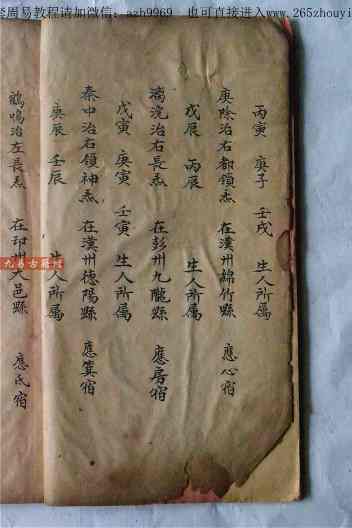 套周易教程请加微信：azh9969 也可直接进入www.265zhouyi
丙寅 庚子 壬戌 生人所属
庚除治右都領炁 在漢州綿竹縣 應心宿
戊辰 丙辰 生人所属
漓沅治右長炁 在彭州九隴縣 應房宿
戊寅 庚寅 壬寅 生人所属
秦中治右領神炁 在漢州德陽縣 應箕宿
庚辰 壬辰 生人所属
鶴鳴治左長炁 在邛州大邑縣 應氐宿
九易古籍